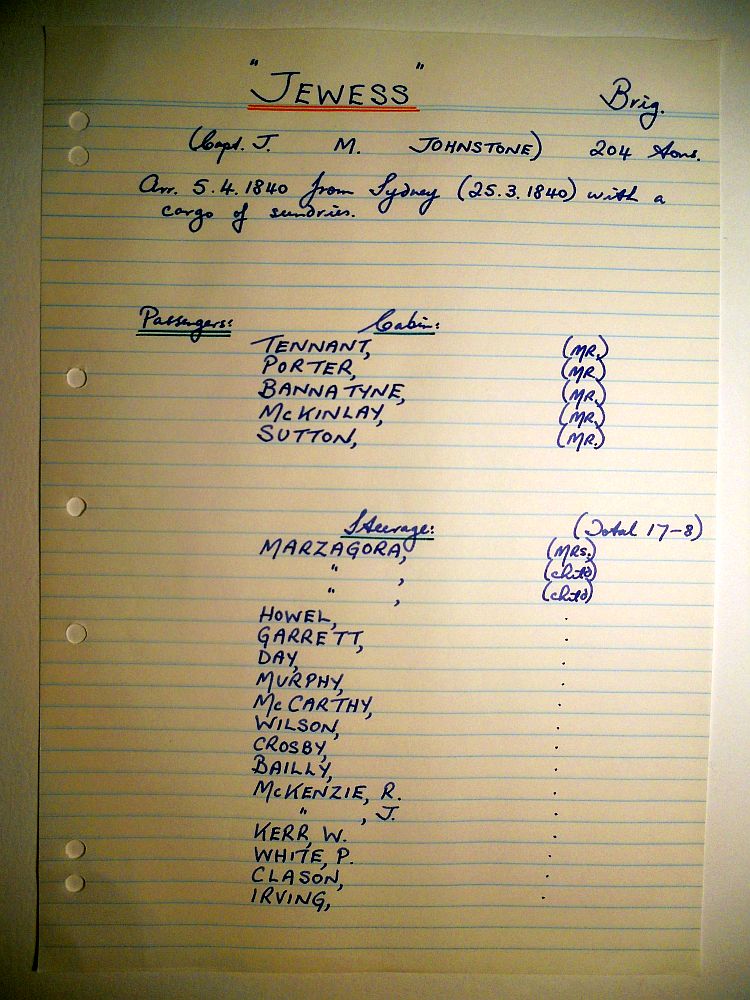 "JEWESS" Brig.
(Capt. J. M. JOHNSTONE) 204 tons.
Arr. 5.4.1840 from Sydney (25.3.1840) with a
cargo of sundries.
Passengers: Cabin:
TENNANT, (MR.)
PORTER, (MR.)
BANNATYNE, (MR.)
McKINLAY, (MR.)
SUTTON, (MR.)
Steerage: (Total 17-8)
MARZAGORA, (MRS.)
" , (child)
" , (child)
HOWEL, .
GARRETT, .
DAY, .
MURPHY, .
McCARTHY, .
WILSON, .
CROSBY, .
BAILLY, .
McKENZIE, R. .
" , J. .
KERR, W. .
WHITE, P. .
CLASON, .
IRVING, .